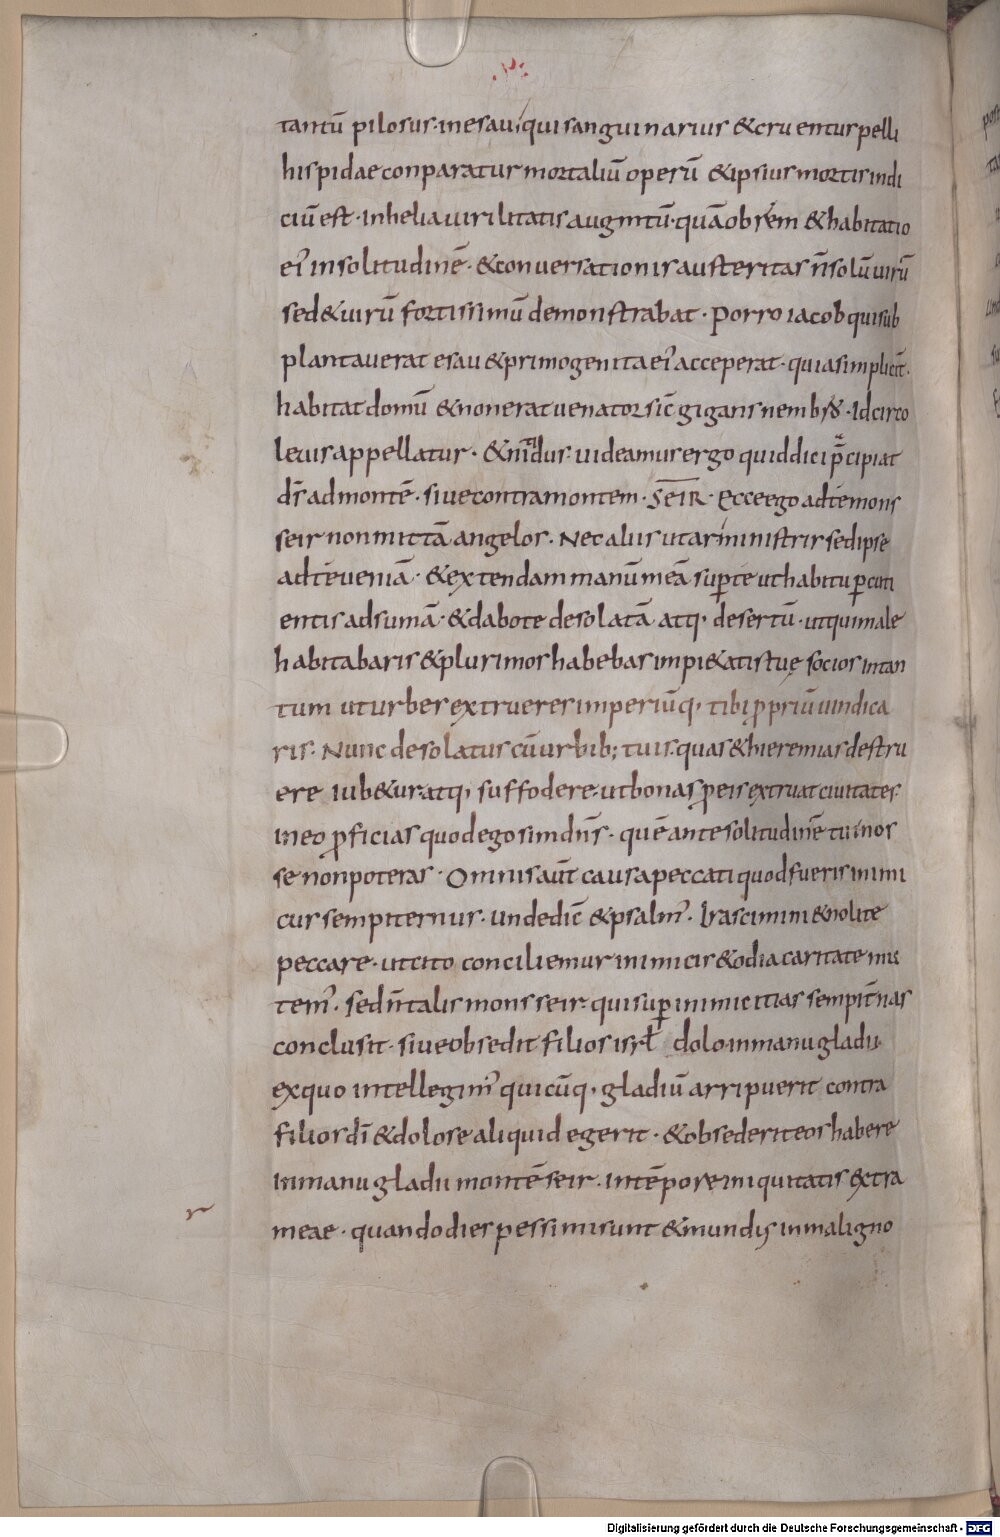 tantū pilosus· in esau· qui sanguinarius & cruentus pelli
hispidae conparatur mortaliū operū & ipsius mortis indi
ciū est· in helia uirilitatis augmtū· quāobrem & habitatio
ei' in solitudinē· & conuersationis austeritas n̄ solū uirū
sed & uirū fortissimū demonstrabat· Porro iacob qui sub
plantauerat esau & primogenita ei' acceperat· quia simplicit̄·
habitat domū & non erat uenator sic̄ gigans nembroth· Idcirco
leuis appellatur· & nitidus· uideamus ergo quid dici p̄cipiat
dn̄s ad montē· siue contra montem· SEIR· Ecce ego ad te mons
seir non mittā angelos· Nec aliis utar ministris sed ipse
ad te ueniā· & extendam manū meā sup te ut habitu pcuti
entis adsumā· & dabo te desolatā atq· desertū· ut qui male
habitabaris & plurimos habebas impi&atis tuę socios in tan
tum ut urbes extrueres imperiūq· tibi ppriū uindica
ris· Nunc desolatus cū urbib; tuis· quas & hieremias destru
ere iub&ur· atq· suffodere· ut bonas p eis extruat ciuitates·
in eo pficias quod ego sim dn̄s· quē ante solitudinē tui nos
se non poteras· Omnis aūt causa peccati quod fueris inimi
cus sempiternus· unde dic̄ & psalm'· Irascimini & nolite
peccare· ut cito conciliemur inimicis & odia caritate mu
tem'· sed n̄ talis mons seir· qui sup inimicitias sempit̄nas
conclusit· siue obsedit filios isrł dolo in manu gladii·
ex quo intellegim' quicūq· gladiū arripuerit contra
filios dī & dolose aliquid egerit· & obsederit eos habere
in manu gladii montē seir· in tēpore iniquitatis extra
meae· quando dies pessimi sunt & mundus in maligno
Digitalisierung gefördert durch die Deutsche Forschungsgemeinschaft - DFG